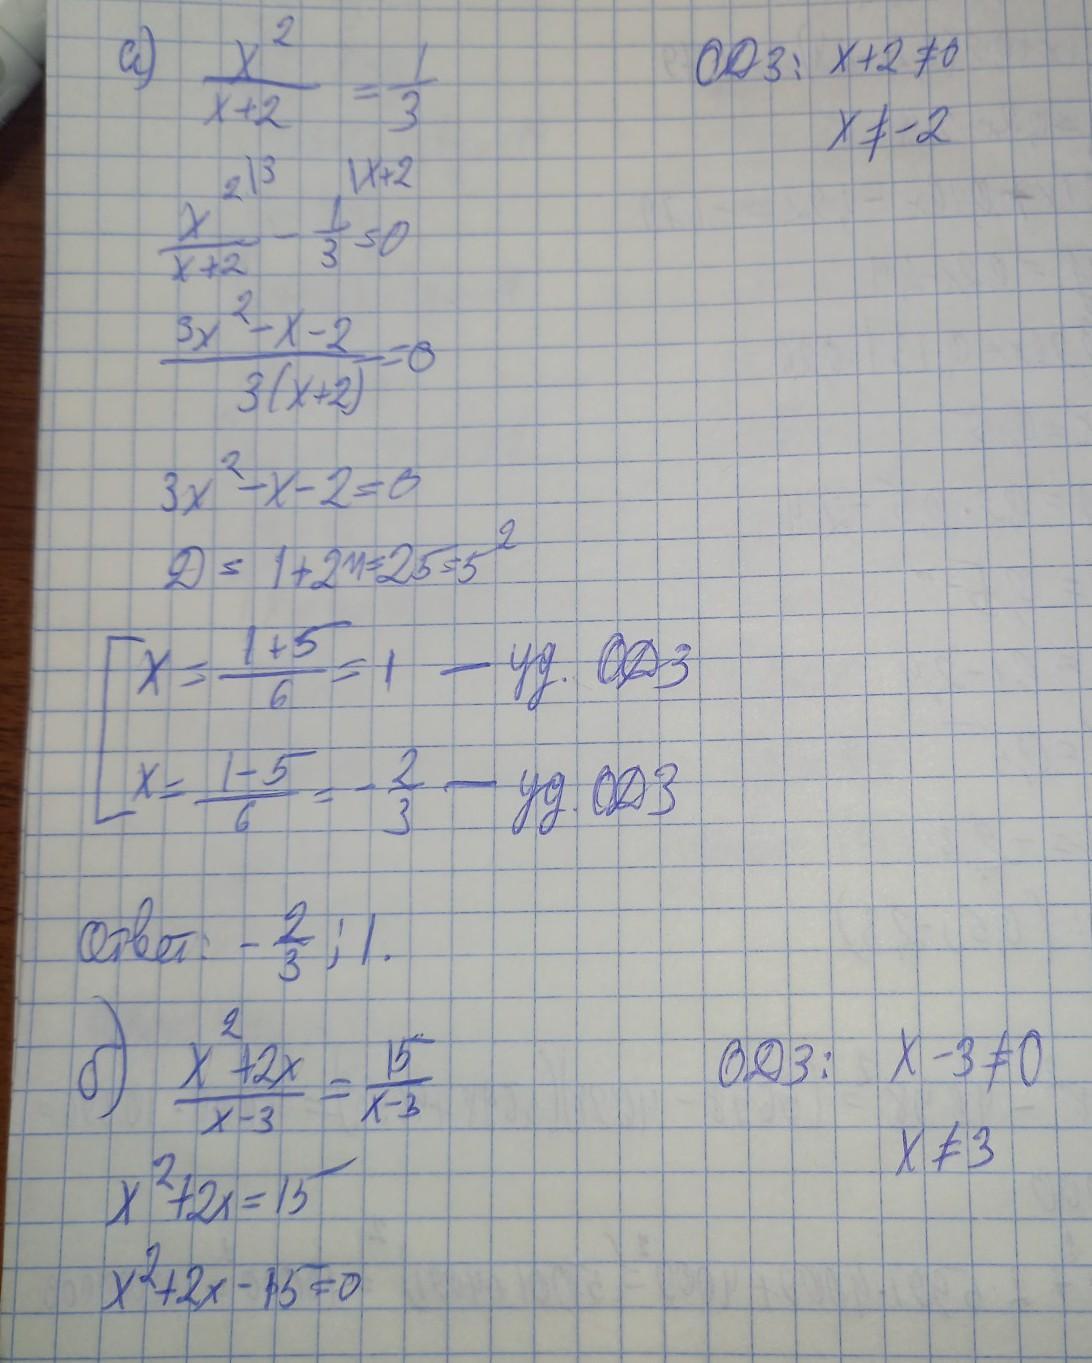 а) x²/(x+2) = 1/3 ОДЗ: x+2≠0
x≠-2
x²\3/(x+2) - 1\x+2/3 = 0
(3x²-x-2)/(3(x+2)) = 0
3x²-x-2=0
D = 1+24=25=5²
[ x = (1+5)/6 = 1 — уд. ОДЗ
x = (1-5)/6 = -2/3 — уд. ОДЗ
Ответ: -2/3; 1.
б) (x²+2x)/(x-3) = 15/(x-3) ОДЗ: x-3≠0
x≠3
x²+2x=15
x²+2x-15=0